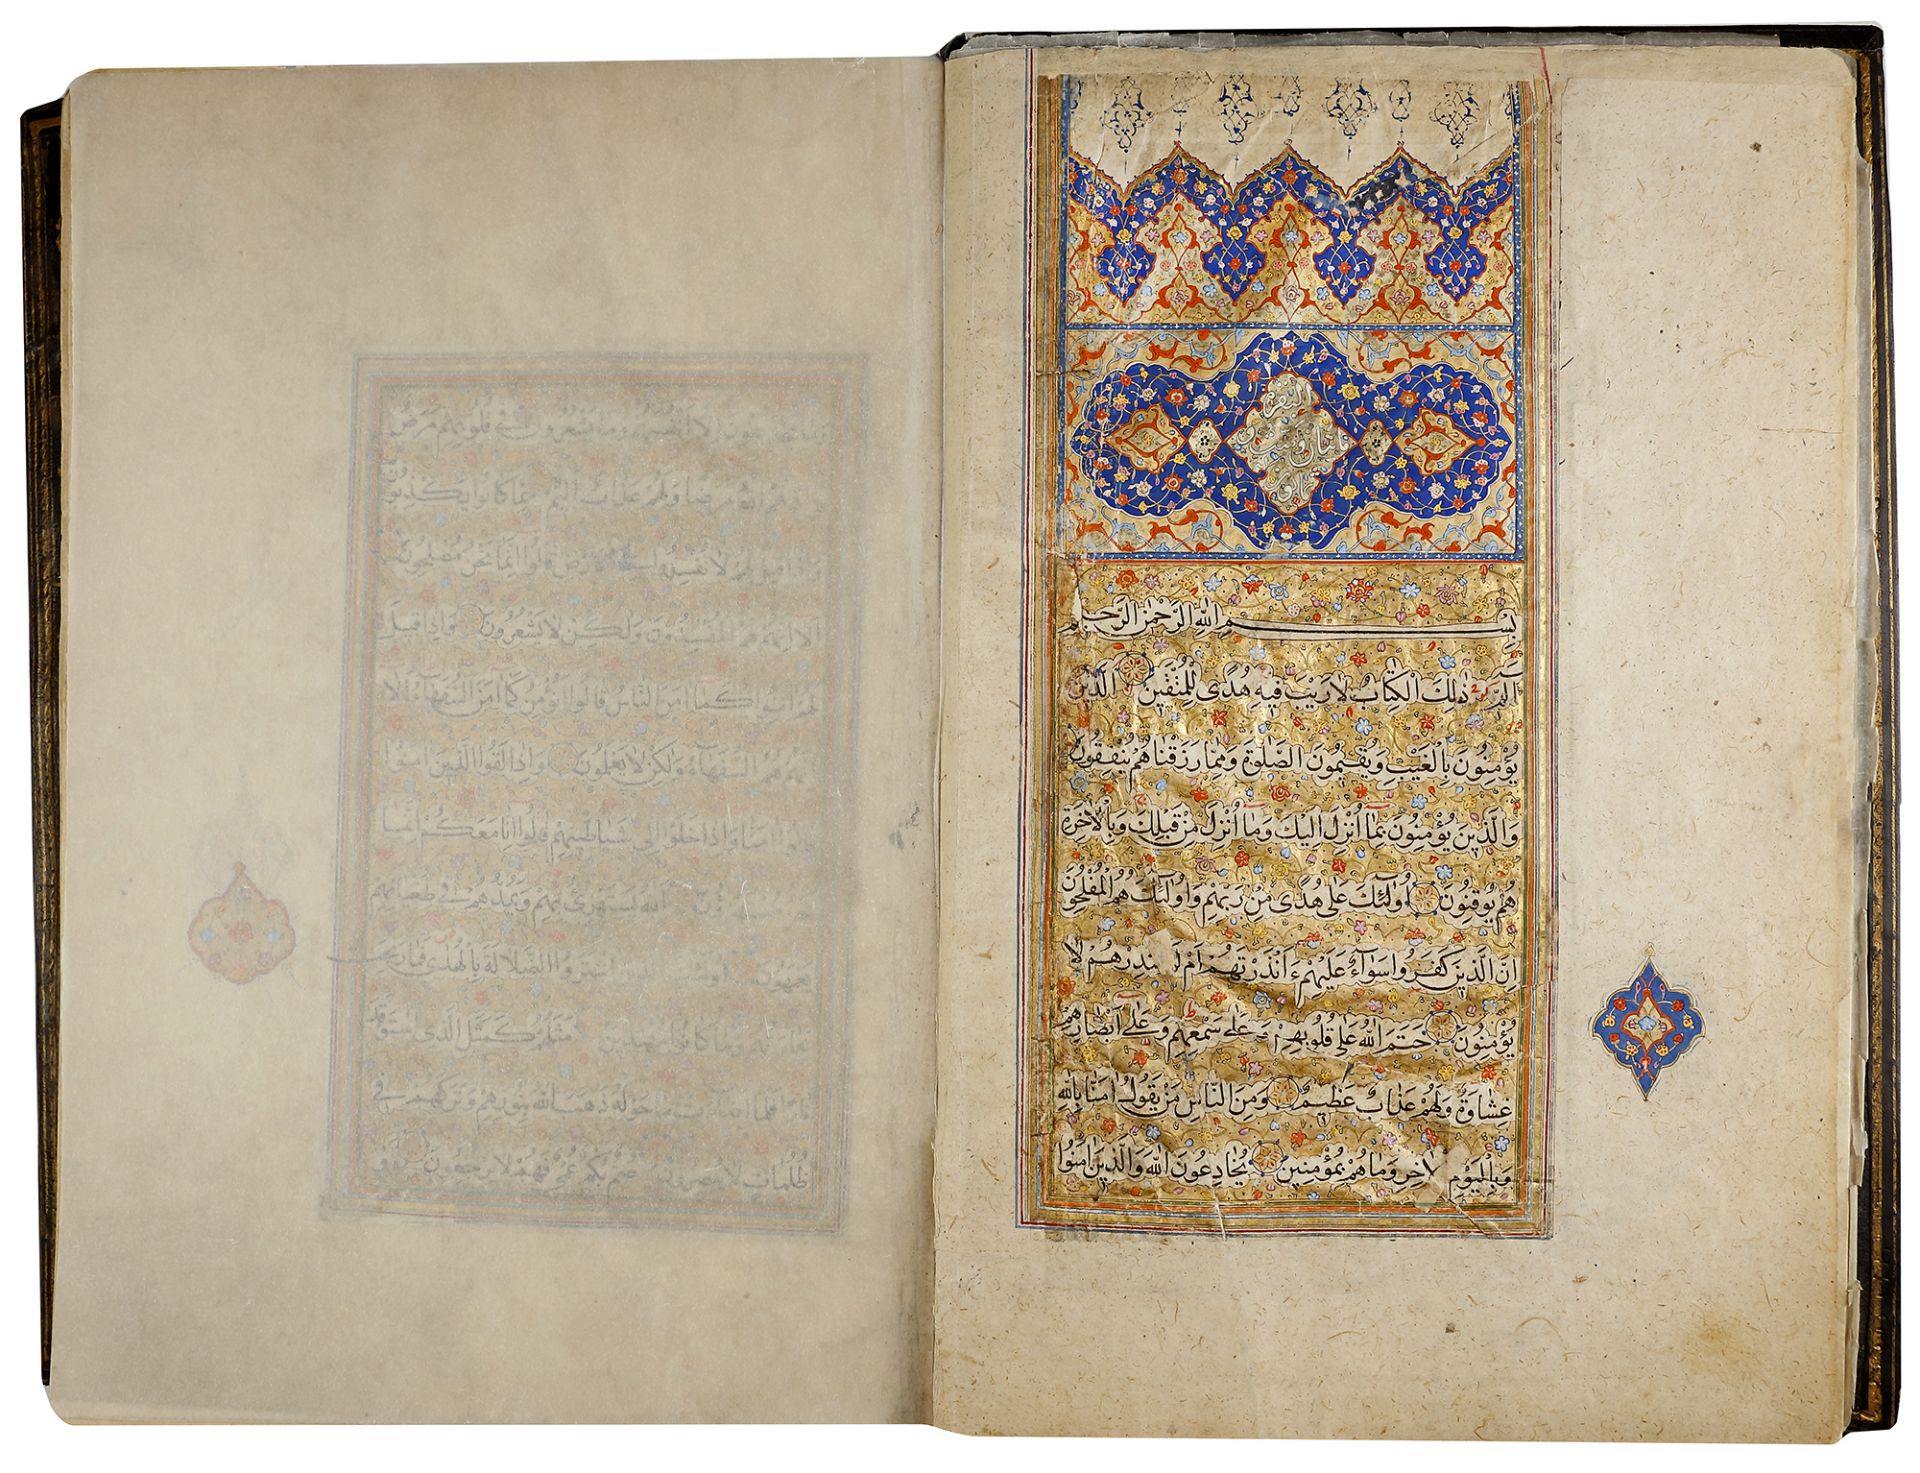 البقرة
بِسْمِ اللهِ الرَّحْمٰنِ الرَّحِيمِ
الٓمٓ ذٰلِكَ الْكِتَابُ لَا رَيْبَ فِيهِ هُدًى لِلْمُتَّقِينَ الَّذِينَ
يُؤْمِنُونَ بِالْغَيْبِ وَيُقِيمُونَ الصَّلٰوةَ وَمِمَّا رَزَقْنَاهُمْ يُنْفِقُونَ
وَالَّذِينَ يُؤْمِنُونَ بِمَا أُنْزِلَ اِلَيْكَ وَمَا أُنْزِلَ مِنْ قَبْلِكَ وَبِالْاٰخِرَةِ
هُمْ يُوقِنُونَ أُولٰئِكَ عَلٰى هُدًى مِنْ رَبِّهِمْ وَاُولٰئِكَ هُمُ الْمُفْلِحُونَ
اِنَّ الَّذِينَ كَفَرُوا سَوَآءٌ عَلَيْهِمْ ءَاَنْذَرْتَهُمْ اَمْ لَمْ تُنْذِرْهُمْ لَا
يُؤْمِنُونَ خَتَمَ اللهُ عَلٰى قُلُوبِهِمْ وَعَلٰى سَمْعِهِمْ وَعَلٰى اَبْصَارِهِمْ
غِشَاوَةٌ وَلَهُمْ عَذَابٌ عَظِيمٌ وَمِنَ النَّاسِ مَنْ يَقُولُ اٰمَنَّا بِاللهِ
وَبِالْيَوْمِ الْاٰخِرِ وَمَا هُمْ بِمُؤْمِنِينَ يُخَادِعُونَ اللهَ وَالَّذِينَ اٰمَنُوا
وما يشعرون في قلوبهم مرض
ولهم عذاب اليم بما كانوا يكذبون
لهم لا تفسدوا في الارض قالوا انما نحن مصلحون
الا انهم هم المفسدون ولكن لا يشعرون واذا قيل
لهم امنوا كما امن الناس قالوا انؤمن كما امن السفهاء الا
انهم هم السفهاء ولكن لا يعلمون واذا لقوا الذين امنوا
قالوا امنا واذا خلوا الى شياطينهم قالوا انا معكم انما
الله يستهزئ بهم ويمدهم في طغيانهم
يعمهون اشتروا الضلالة بالهدى فما ربحت
وما كانوا مهتدين مثلهم كمثل الذي استوقد
ما حوله ذهب الله بنورهم وتركهم في
ظلمات لا يبصرون صم بكم عمي فهم لا يرجعون